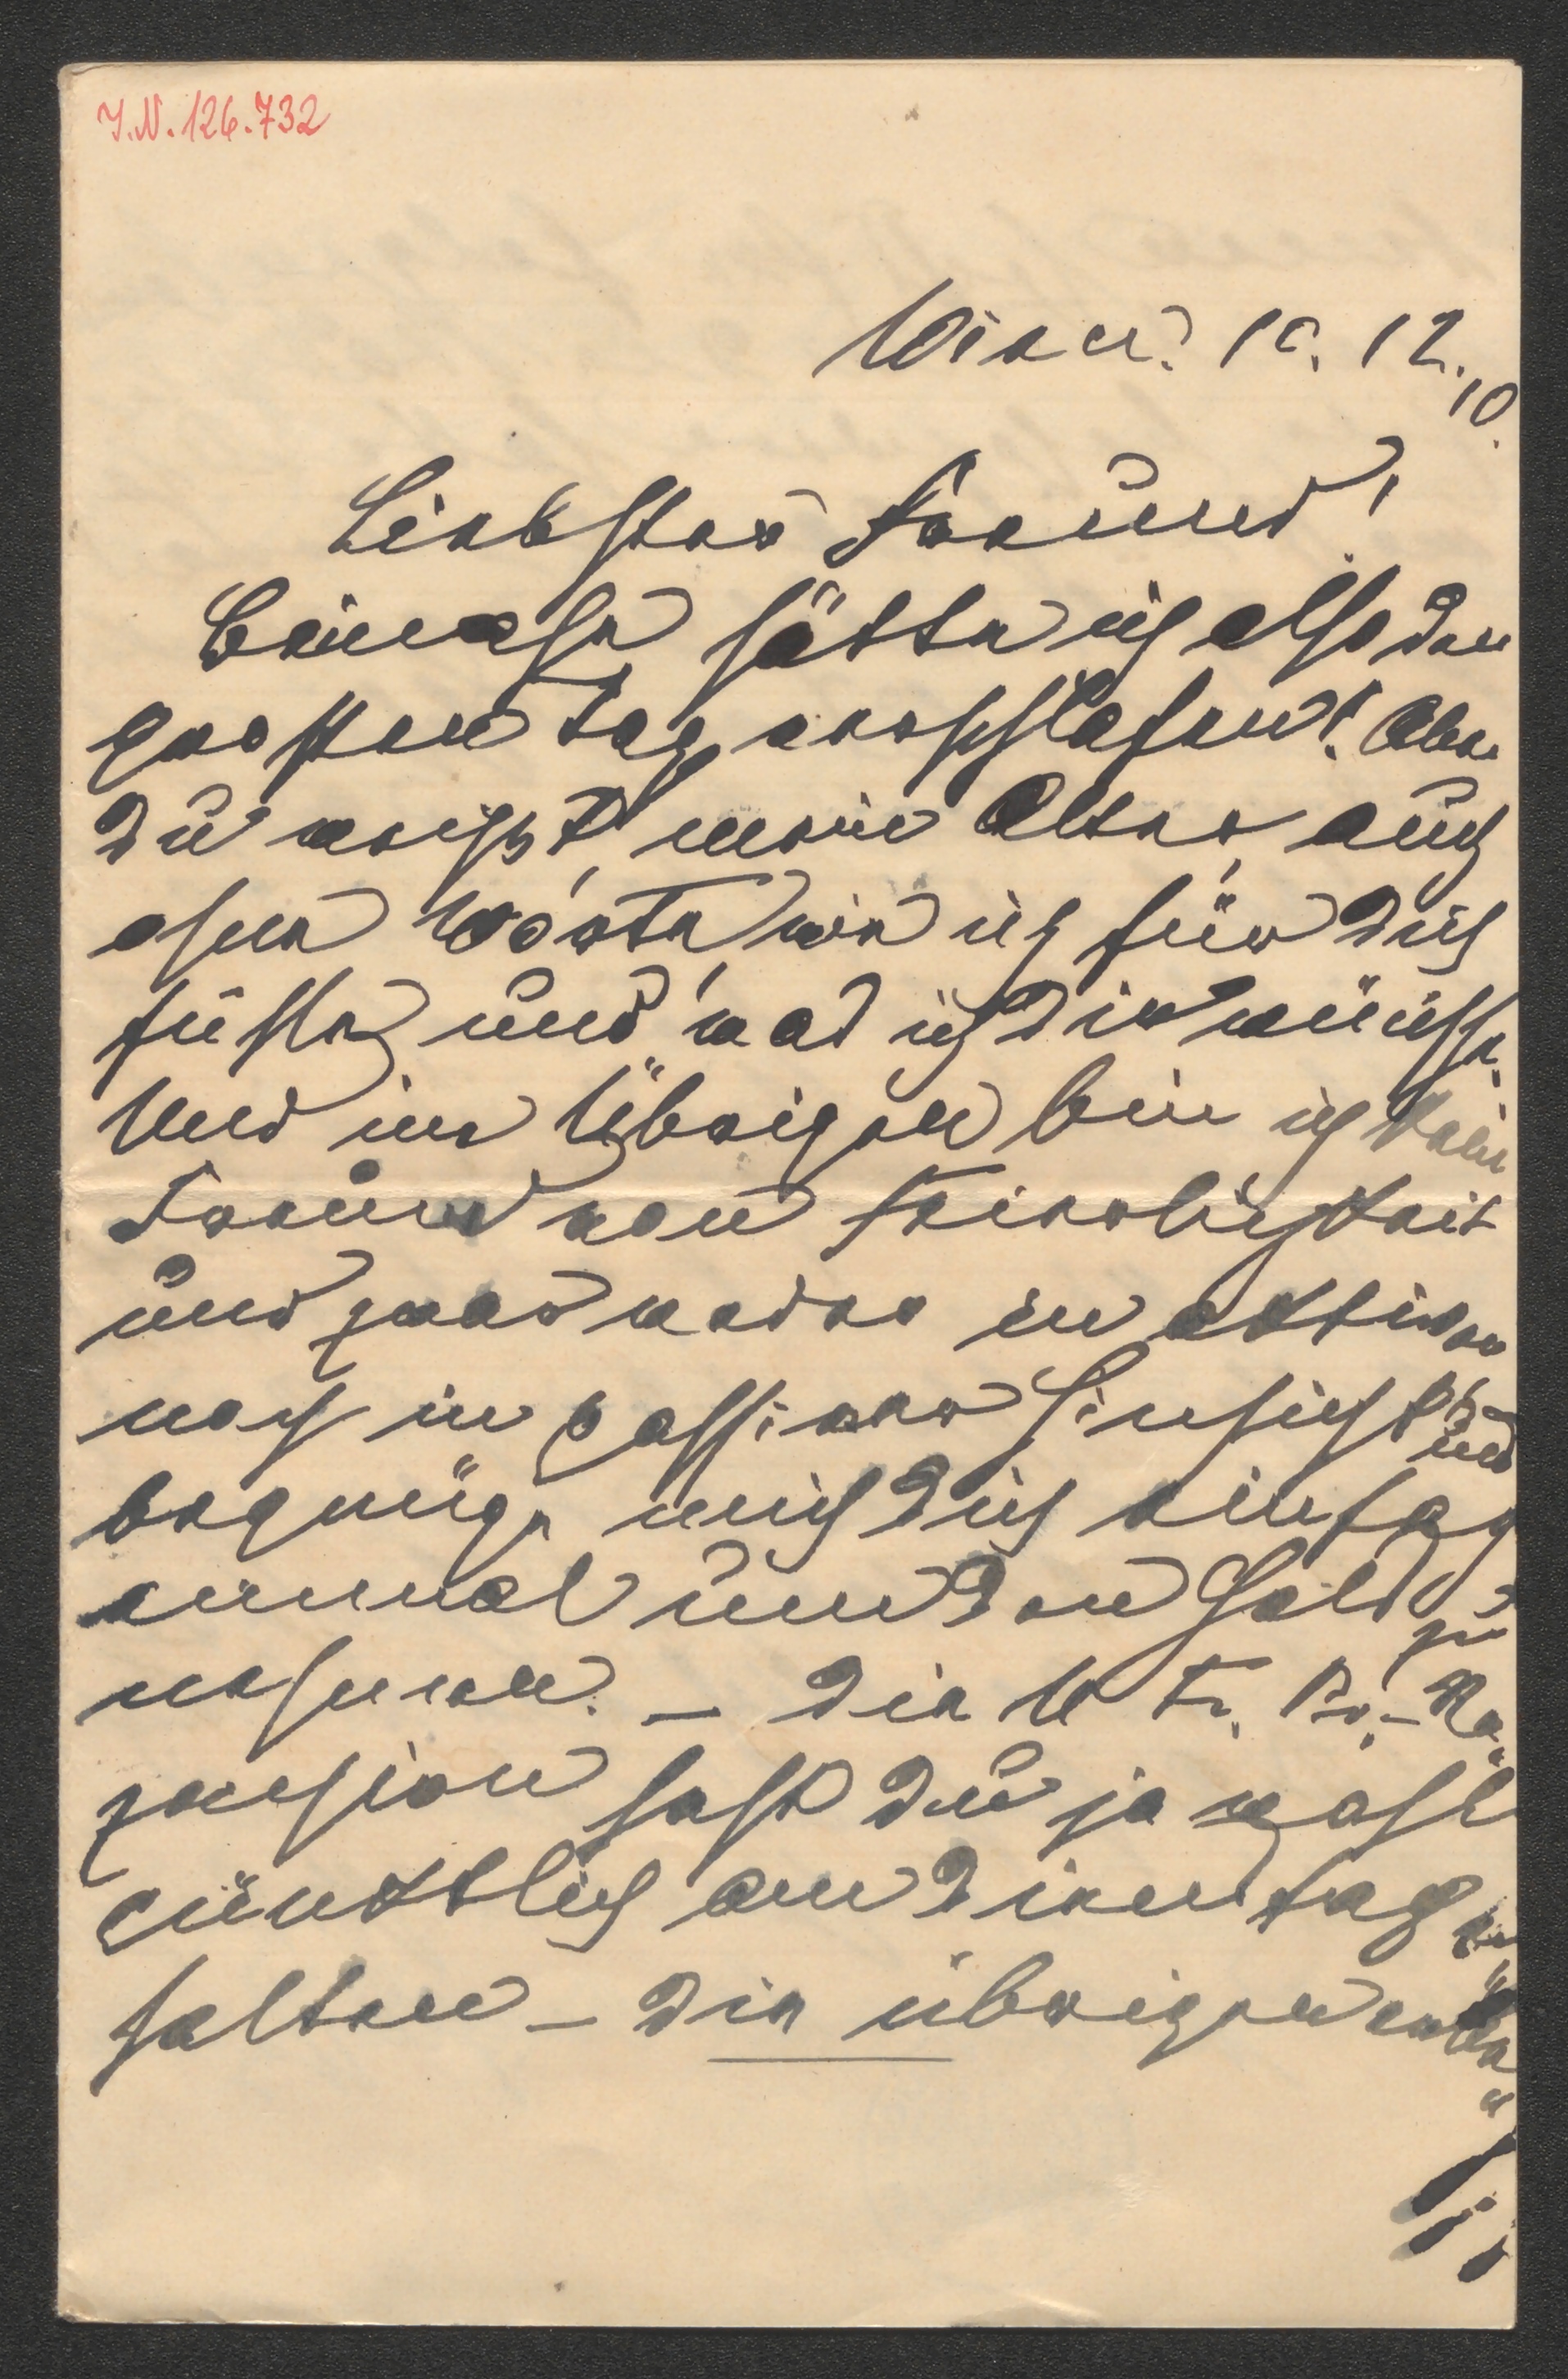 I.N. 126.732
Wien. 10. 12. 10.
Liebster Freund!
Beinahe hätte ich also den
grossen Tag verschlafen! Aber
Du weisst, mein Alter, auch
ohne Worte, wie ich für Dich
fühle und was ich Dir wünsche.
Und im Übrigen bin ich kein
Freund von Feierlichkeit
und zwar weder in aktiver
noch in passiver Hinsicht und
begnüge mich Dich einfach
einmal um den Hals zu
nehmen. – Die N. Fr. Pr.-Re-
zension hast Du ja wohl
pünktlich am Dienstag er-
halten – die übrigen